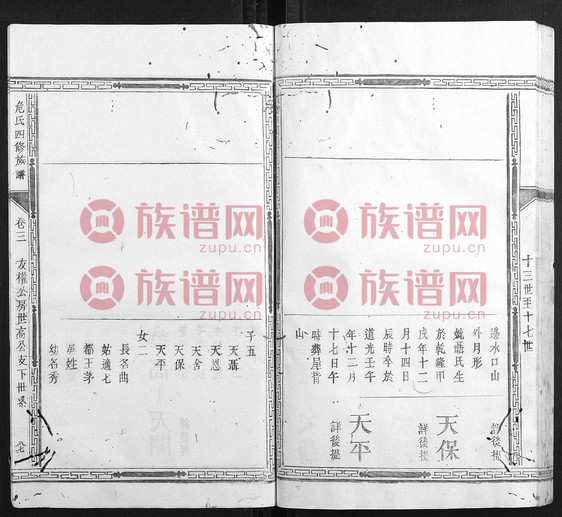 十三世至十七世
天保
詳後提
天平
詳後提
邊水口山
外月形
氏生
於乾隆甲
戌年十二
月十四日
辰時卒於
道光壬午
年十二月
十七日午
時葬屋背
山
子五
天恩
天舍
天保
天平
女二
長名曲
姑適七
都王茅
姓
幼名秀
危氏四修族譜
卷三
友權公房世高公支下世系
族谱网
zupu.cn
族谱网
zupu.cn